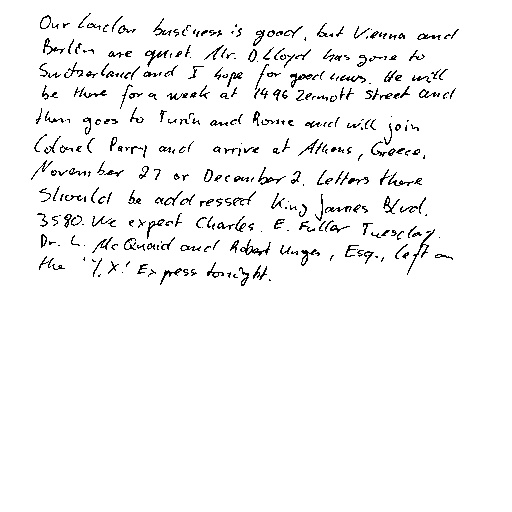 Our London business is good, but Vienna and
Berlin are quiet. Mr. D. Lloyd has gone to
Switzerland and I hope for good news. He will
be there for a week at 1496 Zermott Street and
then goes to Turin and Rome and will join
Colonel Parry and arrive at Athens, Greece,
November 27 or December 2. Letters there
should be addressed King James Blvd.
3580. We expect Charles E. Fuller Tuesday.
Dr. L. McQuaid and Robert Unger, Esq., left on
the 'Y.X.' Express tonight.